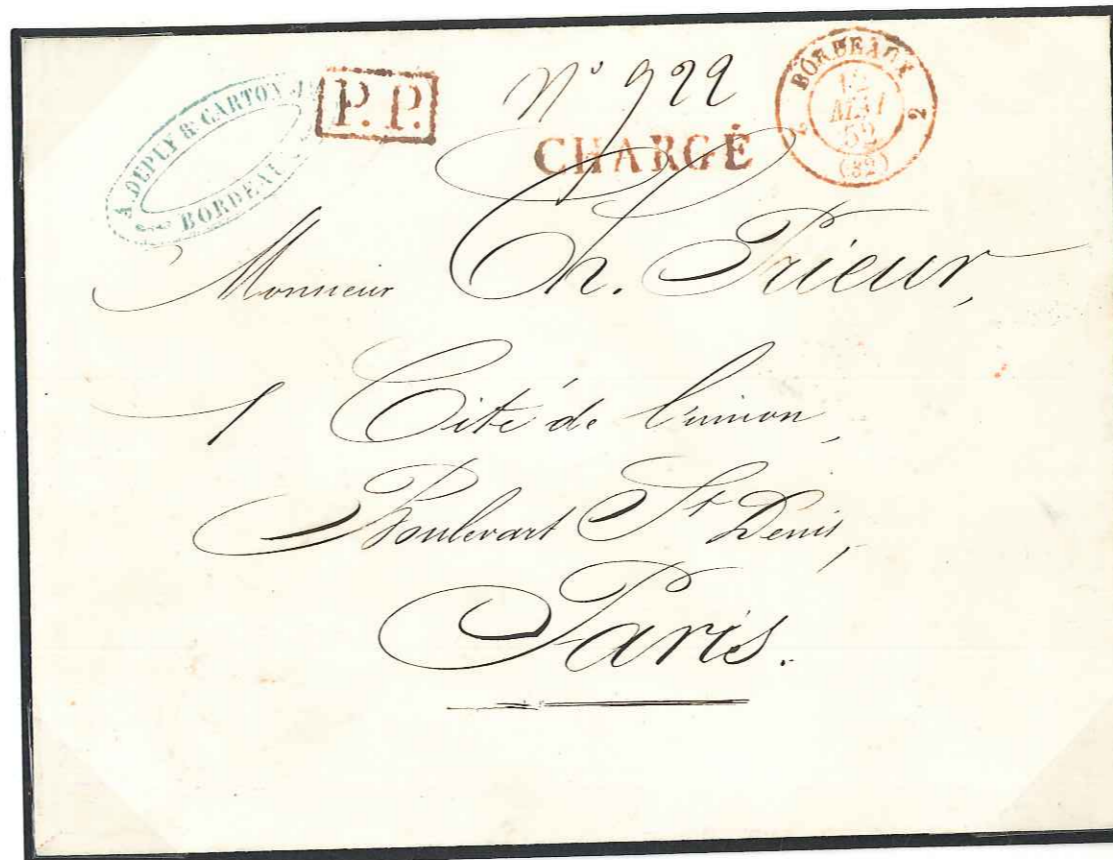 A. DEPUY & CARTON J
BORDEAU
P.P.
N° 922
CHARGÉ
BORDEAUX
12
MAI
52
2
(32)
Monsieur Ch. Prieur,
1 Cité de l'union,
Boulevart St Denis,
Paris.